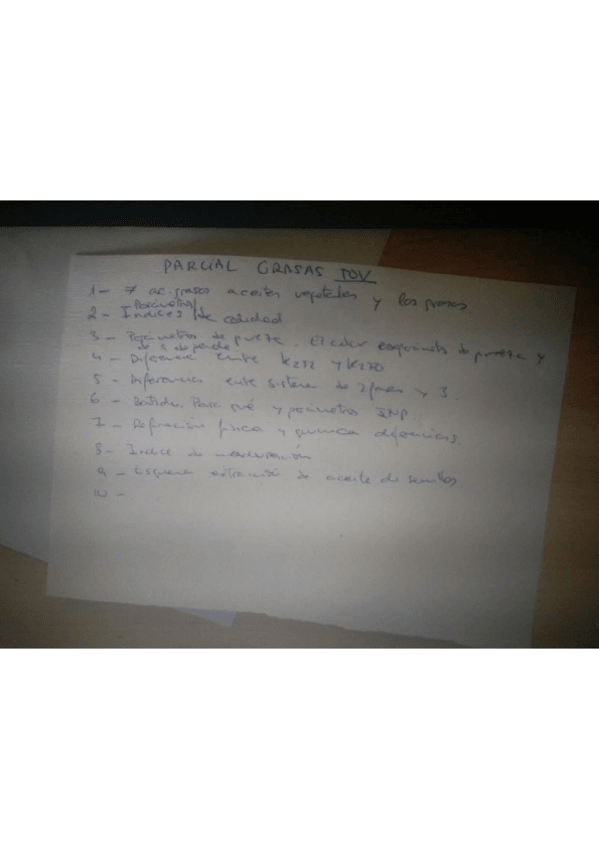 PARCIAL GRASAS TOV
1- 7 ac. grasos aceites vegetales y los grasos
Parámetros/
2- Índices de calidad
3- Parámetros de pureza. El color de pureza y
de q depende
4- Diferencia entre K232 y K270
5- Diferencias entre sistema de 2 fases y 3.
6- Batido. Para qué y parámetros
7- Refinación física y química diferencias
8- Índice de maduración
9- Esquema extracción de aceite de semillas
10-